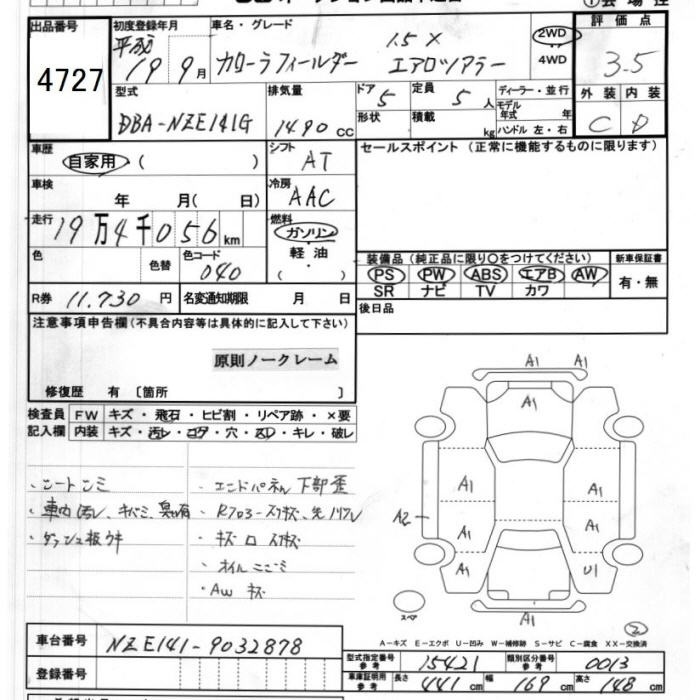 出品番号 初度登録年月 車名・グレード 評価点
4727 平成 19 9月 カローラフィールダー 1.5X エアロツアラー 2WD 4WD 3.5
型式 排気量 ドア 定員 ディーラー・並行 外装 内装
DBA-NZE141G 1490cc 5 5人 モデル年式 年 C D
形状 積載 kg ハンドル 左・右
車歴 自家用 ( ) シフト AT セールスポイント (正常に機能するものに限ります)
車検 年 月( 日) 冷房 AAC
走行 19万4千056km 燃料 ガソリン 軽油 ( )
色 色替 色コード 040
装備品 (純正品に限り〇をつけてください) 新車保証書
PS PW ABS エアB AW 有・無
SR ナビ TV カワ
R券 11,730円 名変通知期限 月 日 後日品
注意事項申告欄(不具合内容等は具体的に記入して下さい)
原則ノークレーム
修復歴 有 〔箇所 〕
検査員 FW キズ・飛石・ヒビ割・リペア跡・×要
記入欄 内装 キズ・汚レ・コゲ・穴・スレ・キレ・破レ
・シートシミ ・エンドパネル下部歪
・車内汚レ、キバミ、臭い有
・ダッシュ板ウキ
・AW キズ
A1 A1
A1
A1 A1
A2 A1 A1
A1 U1
A1
スペア
A-キズ E-エクボ U-凹み W-補修跡 S-サビ C-腐食 XX-交換済
車台番号 NZE141-9032878
登録番号
型式指定番号 参考 15421 類別区分番号 参考 0013
車庫証明用 参考 長さ 441cm 幅 169cm 高さ 148cm